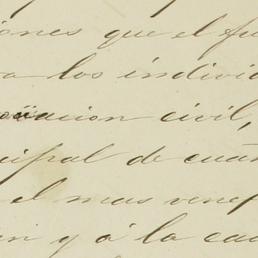 iones que el fu
a los individ
ociacion civil,
cipal de cuan
el mas vene
en y á la cau